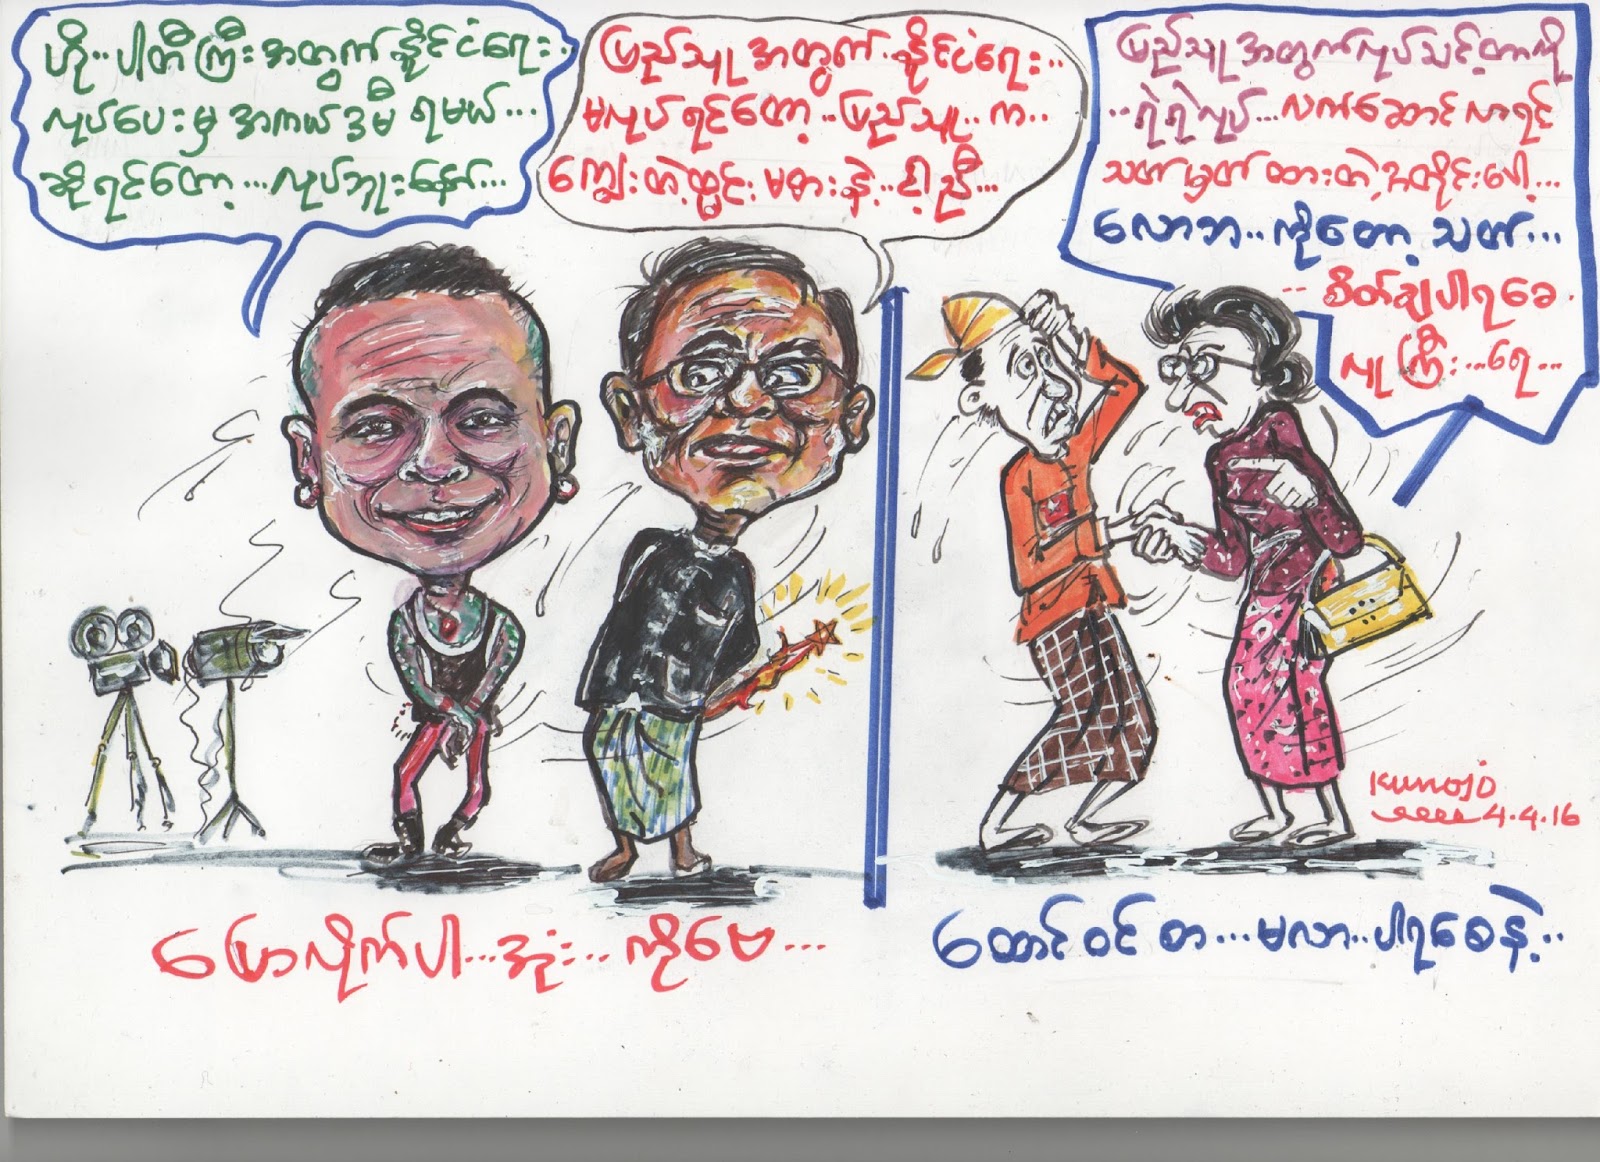 ဟို..ပါတီကြီးအတွက်နိုင်ငံရေး.
လုပ်ပေးမှ အကယ်ဒမီ ရမယ်...
ဆိုရင်တော့...လုပ်ဘူးနော်...
ပြည်သူအတွက်..နိုင်ငံရေး..
မလုပ်ရင်တော့..ပြည်သူ..က..
ကျွေးတဲ့ထွင်း မစားနဲ့..ငါ့ညီ...
ပြည်သူအတွက်လုပ်သင့်တာကို
..ရဲရဲလုပ်...လက်ဆောင်လာရင်
သတ်မှတ်ထားတဲ့အတိုင်းပေါ့...
လောဘ..ကိုတော့ သတ်...
..စိတ်ချပါရစေ.
လူကြီး...ရေ...
Kumoso
4.4.16
ပြောလိုက်ပါ...အုံး..ကိုမေ...
ထောင်ဝင်စာ...မလာ..ပါရစေနဲ့..